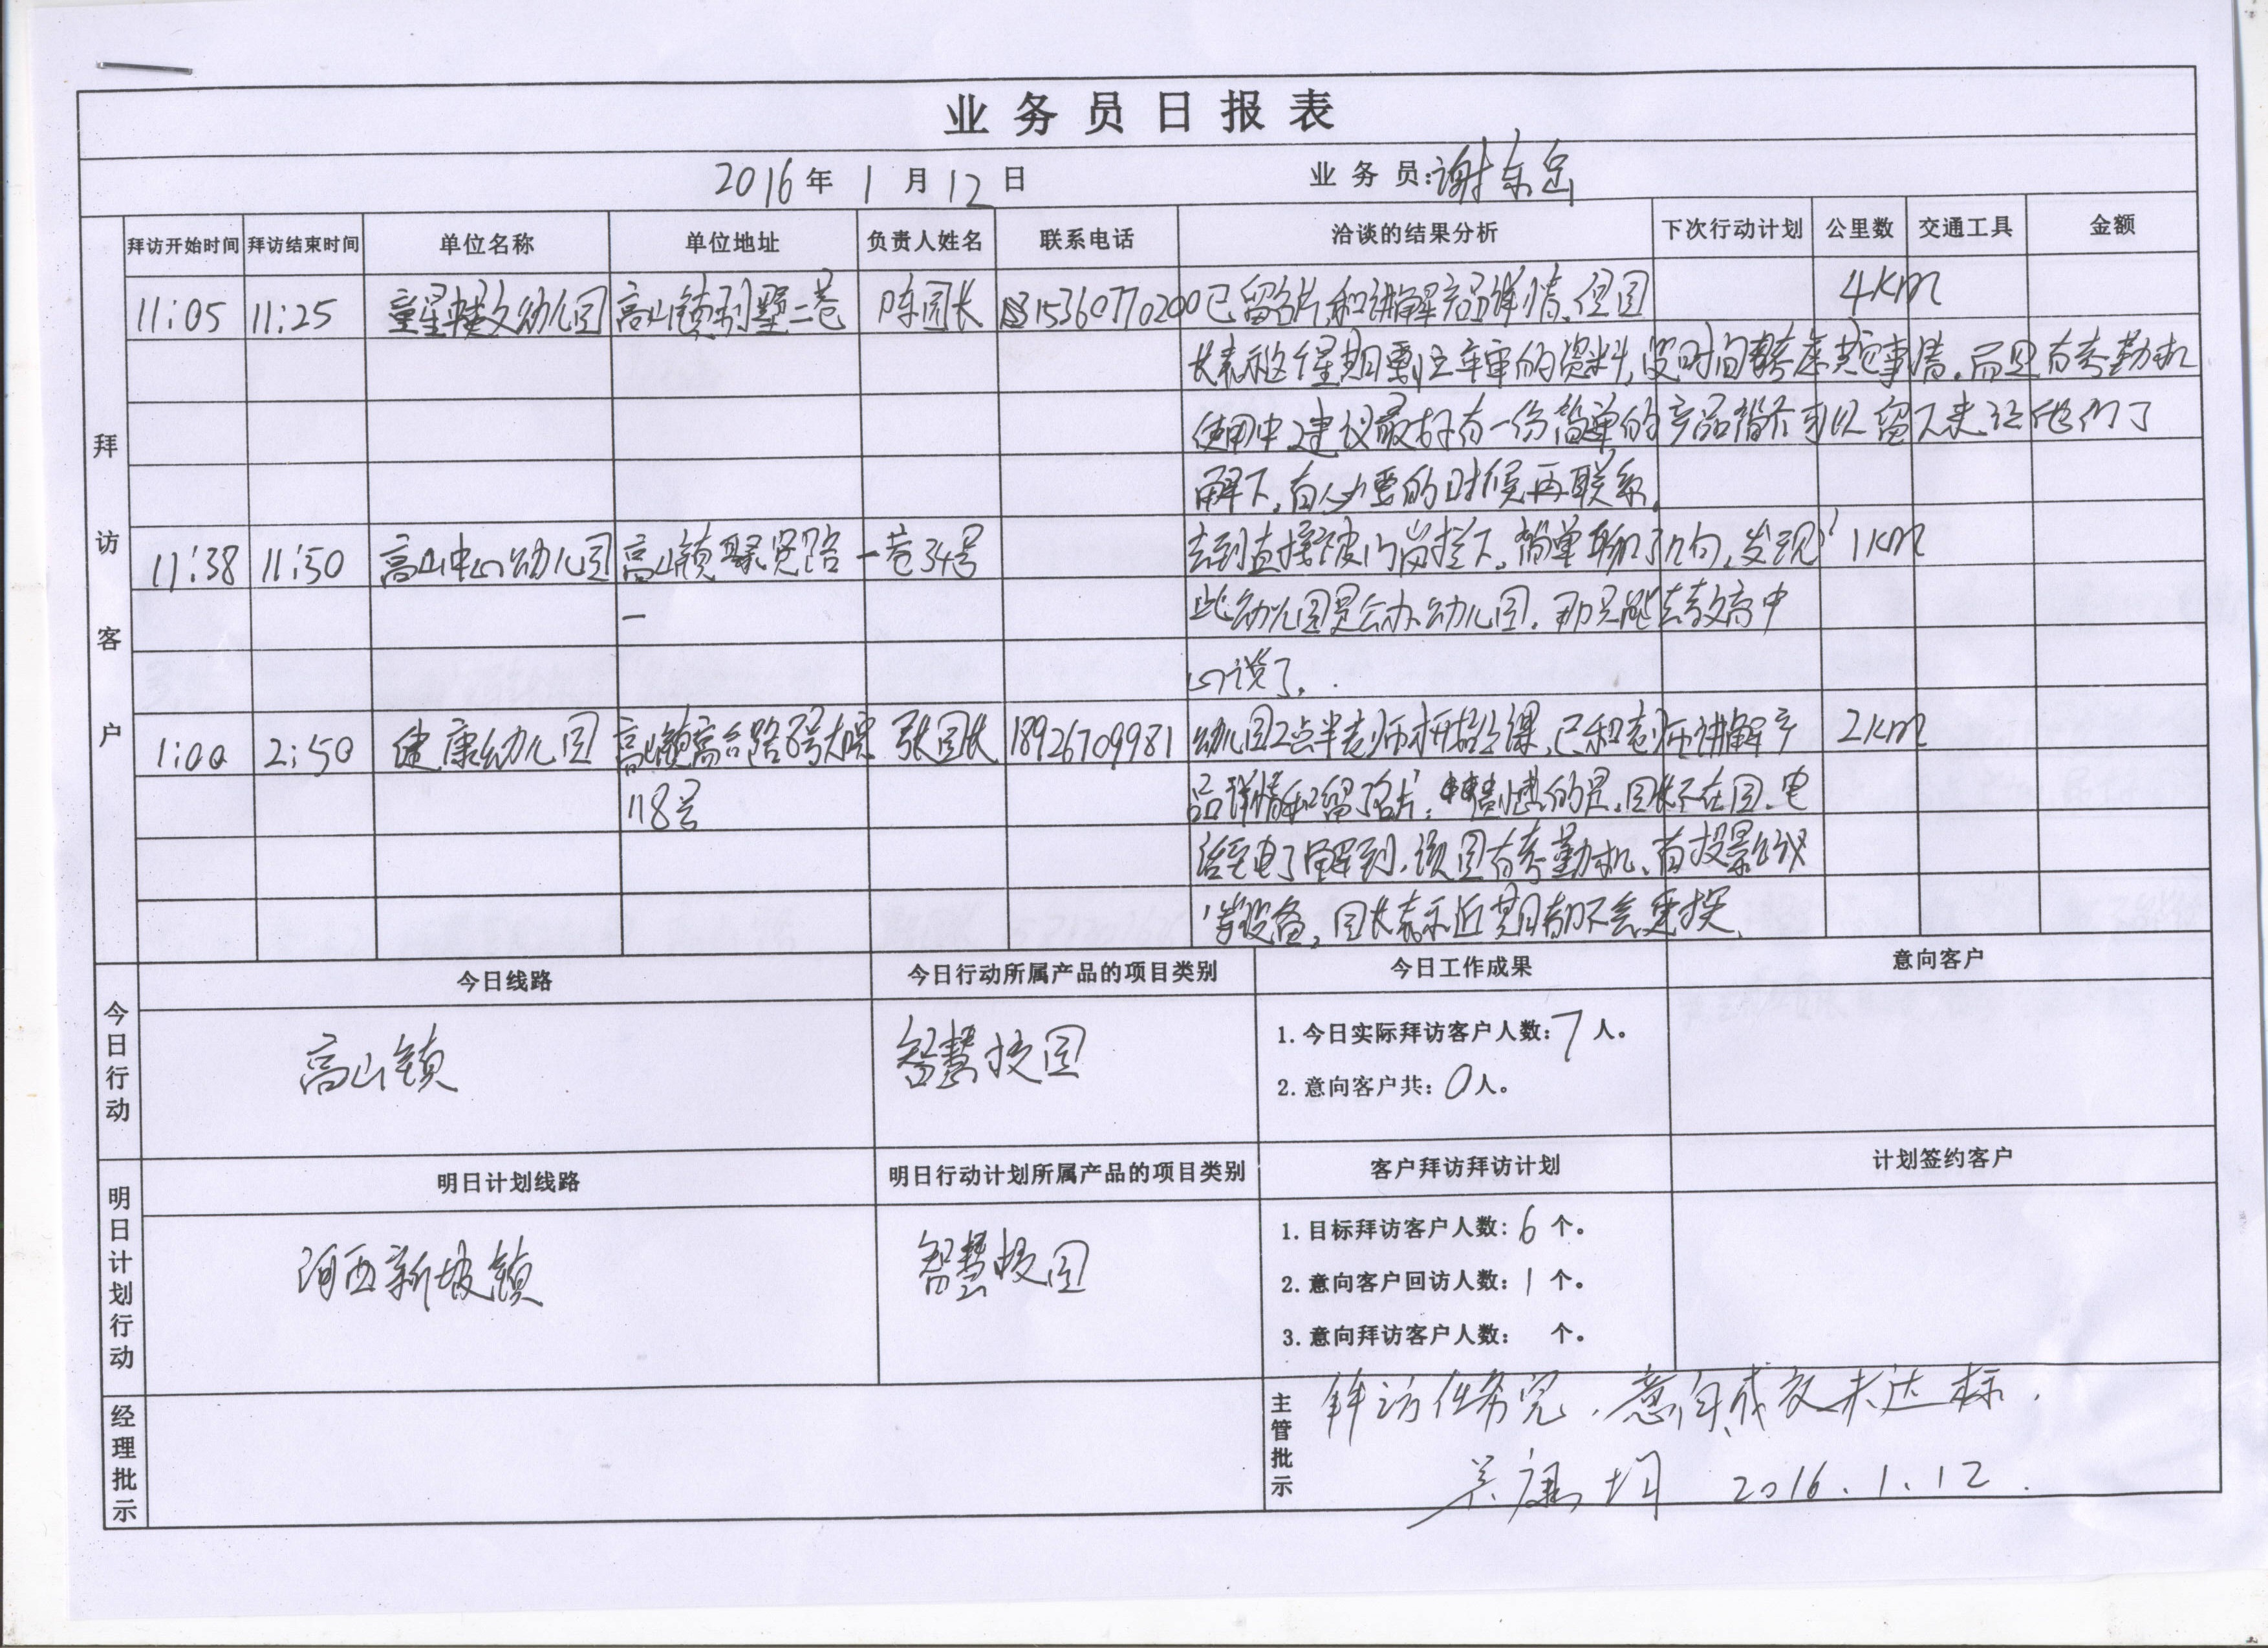 业务员日报表
2016年 1月12日 业务员:谢东岳
拜访客户
拜访开始时间 拜访结束时间 单位名称 单位地址 负责人姓名 联系电话 洽谈的结果分析 下次行动计划 公里数 交通工具 金额
11:05 11:25 童星 幼儿园 高山镇 二巷 陈园长 15360770200 已留名片和讲解产品详情,但园 4km
长表示这个星期要 年审的资料,没时间考虑其它事情,而且有考勤机
使用中,建议最好有一份简单的产品简介可以留下来让他们了
解下,有必要的时候再联系.
11:38 11:50 高山中心幼儿园 高山镇 路一巷34号 去到直接被门岗拦下,简单聊了几句,发现 1km
此幼儿园是公办幼儿园.那只能去教育中
心谈了.
1:00 2:50 健康幼儿园 高山镇高合路 张园长 18926709981 幼儿园2点半老师才开始上课,已和老师讲解产 2km
118号 品详情和留了名片, 的是,园长不在园,电
话至电了解到,该园有考勤机、有投影仪
等设备,园长表示近期都不会更换.
今日行动
今日线路 今日行动所属产品的项目类别 今日工作成果 意向客户
高山镇 智慧校园
1.今日实际拜访客户人数:7人。
2.意向客户共:0人。
明日计划行动
明日计划线路 明日行动计划所属产品的项目类别 客户拜访拜访计划 计划签约客户
河西新坡镇 智慧校园
1.目标拜访客户人数:6个。
2.意向客户回访人数:1个。
3.意向拜访客户人数: 个。
经理批示
主管批示
拜访任务完,意向成效未达标.
2016.1.12.